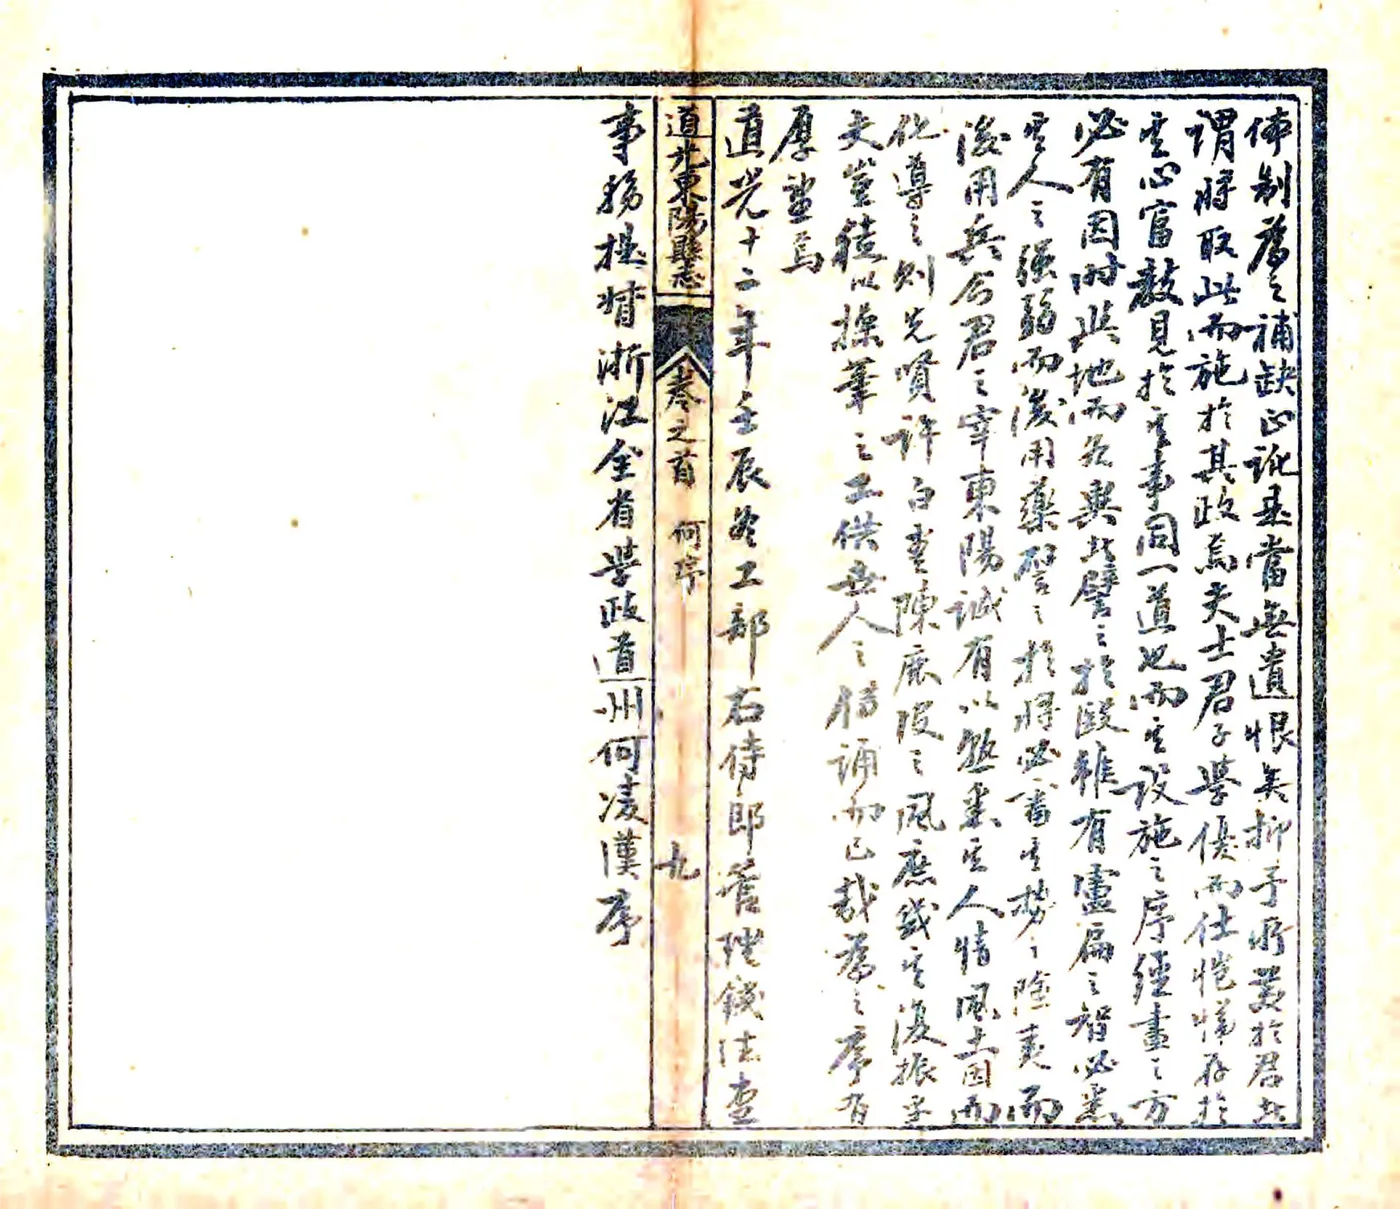 体制為之補缺正訛是當無遺恨矣抑予所叢於君者
謂將取此而施於其政焉夫士君子學優而仕愷悌存於
其心富教見於其事同一道也而其設施之序經畫之方
必有因時與地而各異者譬之於醫雖有盧扁之智必悉
其人之强弱而後用藥譬之於將必審其勢之險夷而
後用兵今君之宰東陽誠有以熟悉其人情風土因而
化導之則先賢許白雲陳鹿皮之風庶幾其復振乎
夫豈徒以操筆之工供無人之傳誦而已哉為之序有
厚望焉
道光十二年壬辰冬工部右侍郎管理錢法堂
道光東陽縣志
卷之首 何序 九
事務提督浙江全省學政道州何凌漢序